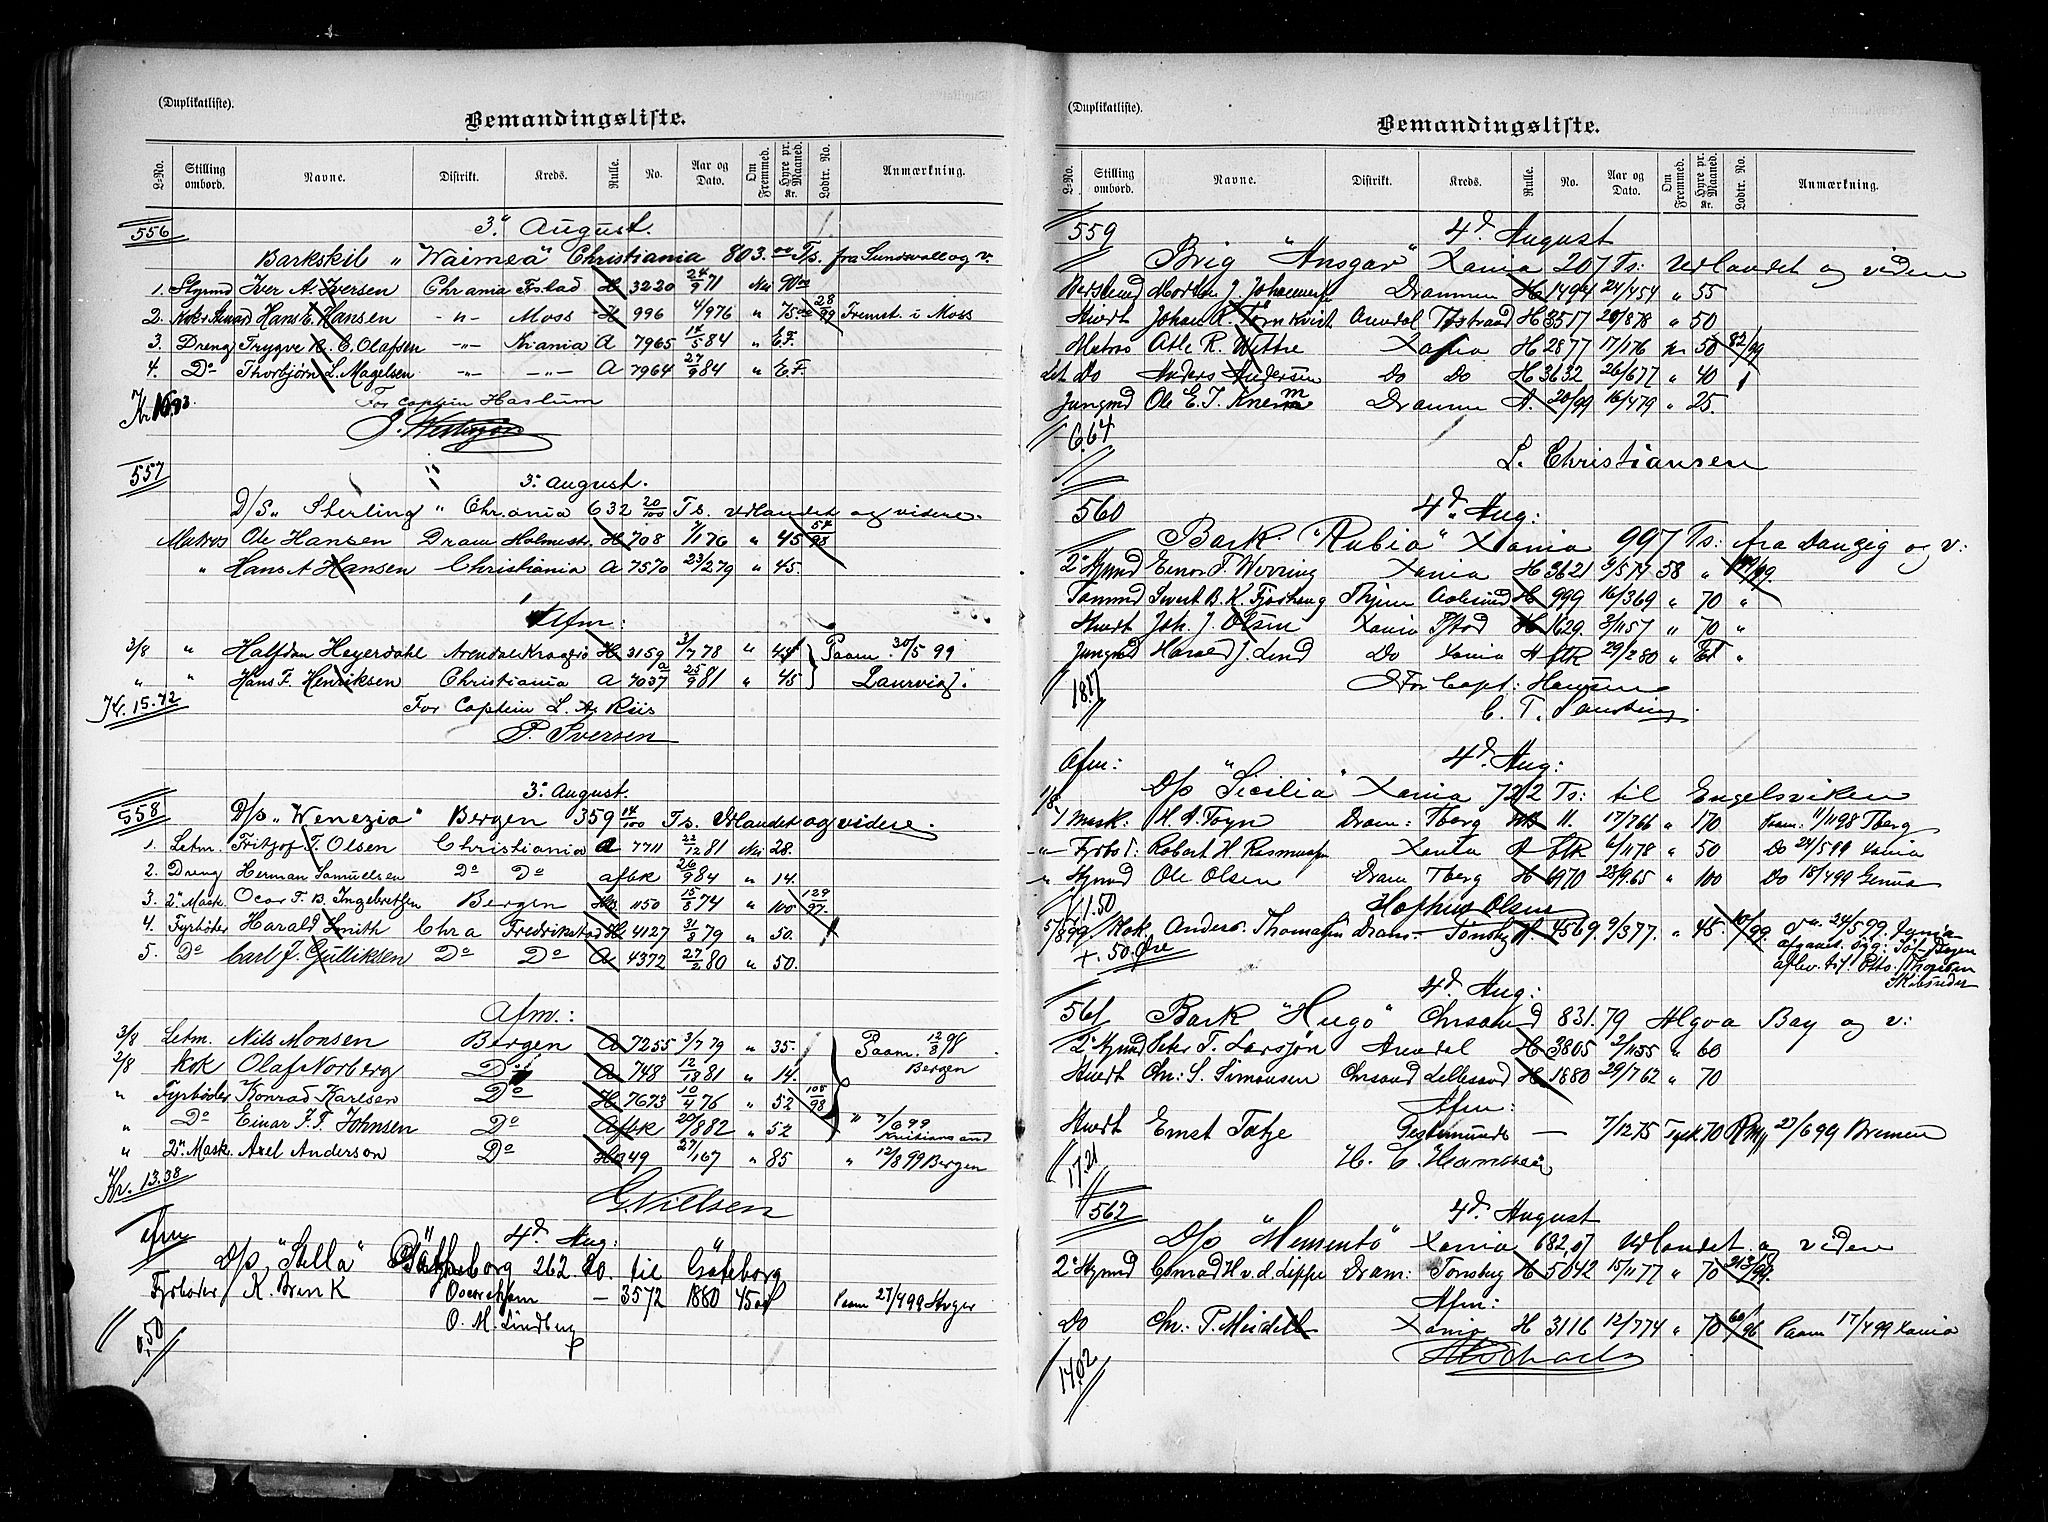 (Duplikatliste).
Bemandingsliste.
L-No. Stilling ombord. Navne. Distrikt. Kreds. Rulle. No. Aar og Dato. Om Fremmed. Hyre pr. Maaned. Kr. Lodtr. No. Anmærkning.
556 3. August.
Barkskib "Waimea" Christiania 803.00 Ts. fra Sundsvall og v.
1. Styrmd Iver A. Iversen Chrania Fstad H 3220 24/9 71 Nei 90.00
2. Kok & Stuard Hans E. Hansen -"- Moss H 996 4/9 76 " 75.00 28/99 Fremst. i Moss
3. Dreng Trygve R. C. Olafsen -"- Kiania A 7965 14/5 84 " E.F.
4. Do Thorbjørn L. Magelsen -"- -"- A 7964 27/9 84 " E.F.
For Captein Haslum
557 3. August.
D/S "Sterling" Christiania 632 20/100 Ts. Udlandet og videre.
Matros Ole Hansen Dram Holmestr. H 708 7/11 76 " 45 54/98
" Hans A Hansen Christiania A 7570 23/2 79 " 45.
Afm:
3/8 " Halfdan Heyerdahl Arendal Kragerø H 3159 3/7 78 " 45 Paam. 30/5 99
" " Hans F. Henriksen Christiania A 7037 25/9 81 " 45 Laurvig.
Kr. 15.72 For Captein L. A. Riis
P. Iversen
558 3. August.
D/s "Wenezia" Bergen 359 14/100 Ts. Udlandet og videre.
1. Letm. Fritjof T. Olsen Christiania A 7711 22/12 81 Nei 28.
2. Dreng Herman Samuelsen Do Do afbk 26/9 84 " 14.
3. 2. Mask. Ocar F. B. Ingebretsen Bergen HB. 1150 15/8 74 " 100 129/97.
4. Fyrbøder Harald Smith Chra Fredrikstad H 4127 3/3 79 " 50.
5. Do Carl J. Gulliksen Do Do A 4372 27/2 80 " 50.
Afm.:
3/8 Letm. Nils Monsen Bergen A 7255 3/7 79 " 35. Paam. 12/8 98
2/8 Kok Olaf Norberg Do A 748 12/12 81 " 14. Bergen
" Fyrbøder Konrad Karlsen Do H 7673 10/4 76 " 52 105/98
" Do Einar J. F. Johnsen Do Afbk 20/8 82 " 52 " 7/6 99 Kristiansand
" 2. Mask. Axel Anderson Do HB 49 27/1 67 " 85 " 12/8 99 Bergen
Kr. 13.38
G. Nielsen
Afm 4d. Aug:
D/s "Stella" Göteborg 262.20. til Göteborg
Fyrbøder K. Brink — 3572 1880 45 Paam 27/4 99
0.50 O. M. Lindberg
(Duplikatliste).
Bemandingsliste.
L-No. Stilling ombord. Navne. Distrikt. Kreds. Rulle. No. Aar og Dato. Om Fremmed. Hyre pr. Maaned. Kr. Lodtr. No. Anmærkning.
559 4d. August
Brig "Ansgar" Xania 207 Ts: Udlandet og videre
Morten J. Johannesen Drammen H 1494 24/4 54 " 55
Stuert Johan R. Törnkvist Arendal H 3517 20/8 78 " 50
Matros Atle R. Wettre Xania H 2877 17/1 76 50 82/99
Let Do Anders Andersen Do Do H 3632 26/6 77 " 40
Jungmd Ole E. T. Knem Drammen A. 20/99 16/4 79 " 25.
6.64
L. Christiansen
560 4d. Aug:
Bark "Rubia" Xania 997 Ts: fra Danzig og v:
2. Styrmd Einar T. Werring Xania H 3621 2/5 74 58 "
Tømmd Sivert B. K. Fjørhaug Thjem Aalesund H 999 16/3 69 " 70 "
Stuert Joh. J. Olsen Xania Fstad H 1629. 3/1 57 " 70 "
Jungmd Harald J. Lind Do Xania A afbk 29/2 80 " "
18.17 For Capt: Hansen
Afm: 4d. Aug:
D/s "Sicilia" Xania 722 Ts: til Engelsviken
1/8 1 Mask: H. A. Foyn Dram: Tberg HB 11. 17/7 66 " 170 Paam: 11/11 98 Tberg
-"- Fyrbd: Robert H Rasmussen Xania A afbk 6/11 78 " 50 Do 24/5 99 Xania
" Styrmd Ole Olsen Dram Tberg H 6970 23/9.65 " 100 Do 18/4 99 Genua
1.50 Olsen
5/8 99 Kok. Anders. Thomassen Dram. Tønsberg H. 4569 9/3 77. " 45. 24/5 99.
+. 50. Øre
561 4d. Aug:
Bark "Hugo" Chrsand 831.79 Algoa Bay og v:
2. Styrmd Peter T. Larsjøn Arendal H 3805 2/11 55 " 60
Stuert Chr: S. Simonsen Chrsand Lillesand H 1880 29/7 62 " 70
Afm:
Stuert Ernst Tatje Gestemünde — 7/12 75 Tysk 70 27/6 99 Bremen
17.21
562 4d. August
D/s "Memento" Xania 682,07 Udlandet og viden
2. Styrmd Conrad H v. d. Lippe Dram: Tønsbg H 5042 15/11 77 " 70
Afm:
Do Chr: P. Meidell Xania H 3116 12/7 74 " 70 60/96 Paam 17/4 99 Xania
14.02